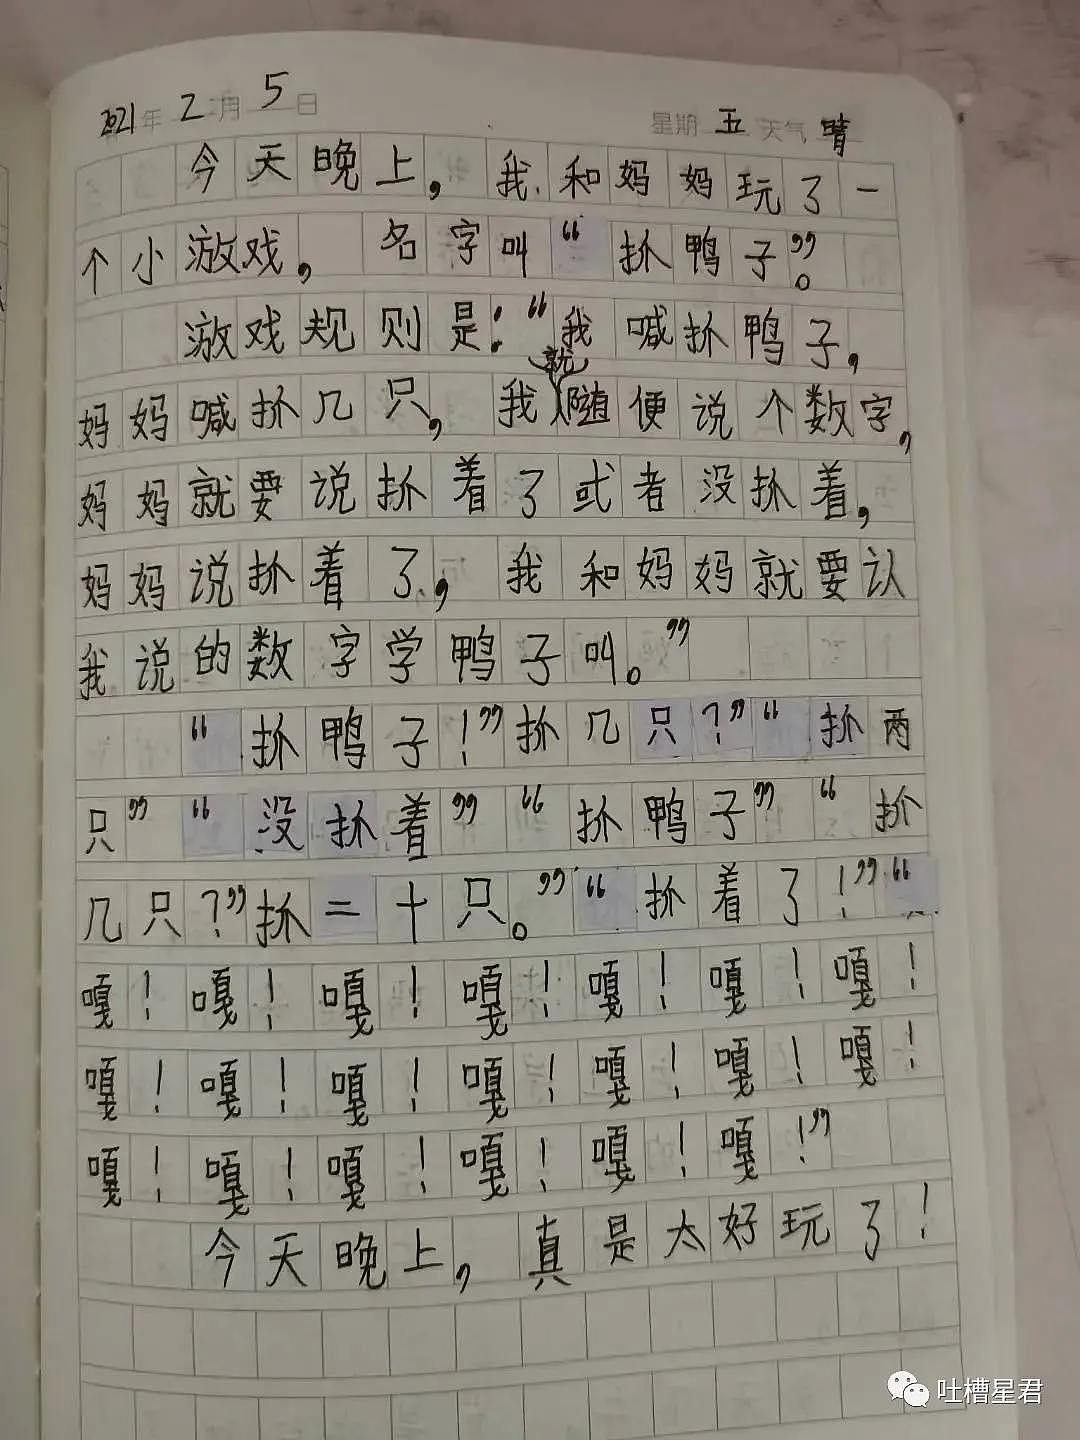 2021年2月5日 星期五天气晴
今天晚上，我和妈妈玩了一
个小游戏，名字叫“抓鸭子”。
游戏规则是：“我喊抓鸭子，
妈妈喊抓几只，我就随便说个数字，
妈妈就要说抓着了或者没抓着，
妈妈说抓着了，我和妈妈就要认
我说的数字学鸭子叫。”
“抓鸭子！”抓几只？”“抓两
只”“没抓着”“抓鸭子”“抓
几只？”抓二十只。”“抓着了！”“
嘎！嘎！嘎！嘎！嘎！嘎！嘎！
嘎！嘎！嘎！嘎！嘎！嘎！嘎！
嘎！嘎！嘎！嘎！嘎！嘎！”
今天晚上，真是太好玩了！
吐槽星君